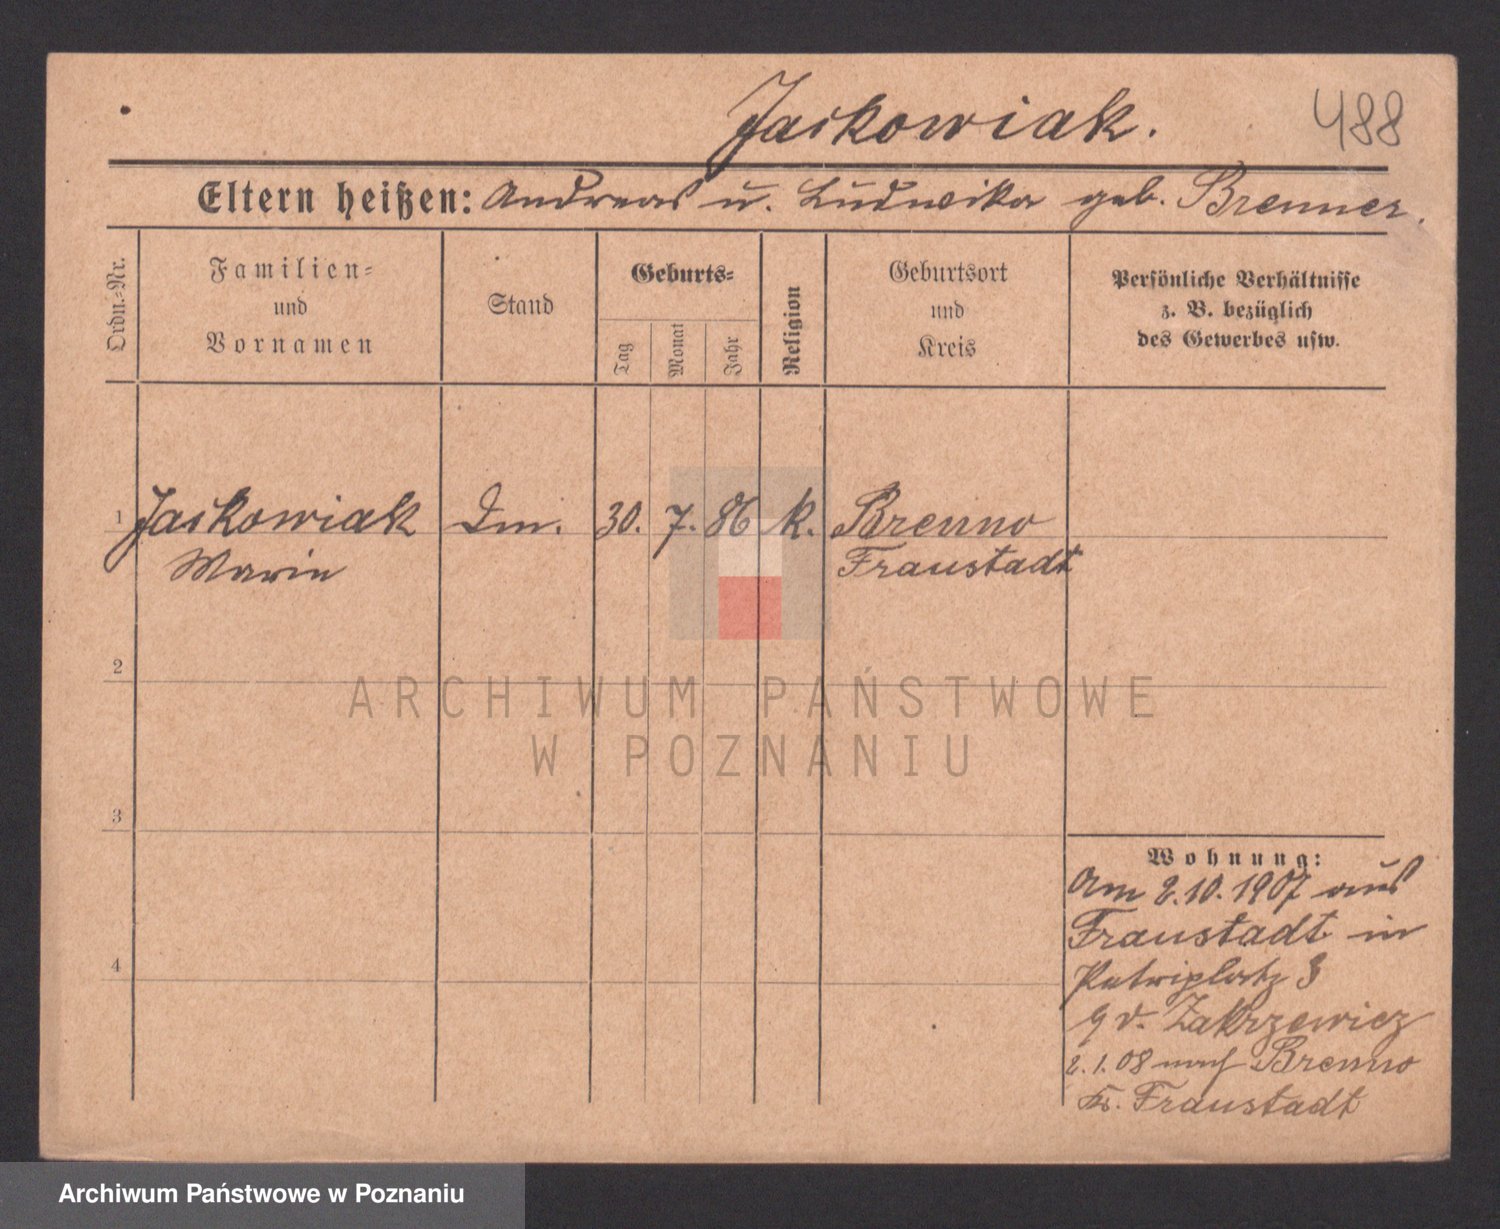 Jaskowiak.
488
Eltern heißen: Andreas u. Ludwika geb. Brenner.
Ordn.=Nr.
Familien=
und
Vornamen
Stand
Geburts=
Tag
Monat
Jahr
Religion
Geburtsort
und
Kreis
Persönliche Verhältnisse
z. B. bezüglich
des Gewerbes usw.
1 Jaskowiak Dm. 30. 7. 86 k. Brenno
Marie Fraustadt
2
ARCHIWUM PAŃSTWOWE
W POZNANIU
3
Wohnung:
Am 2.10.1907 aus
Fraustadt in
Petriplatz 3
v. Zakrzewicz
2.1.08 nach Brenno
Kr. Fraustadt
4
Archiwum Państwowe w Poznaniu